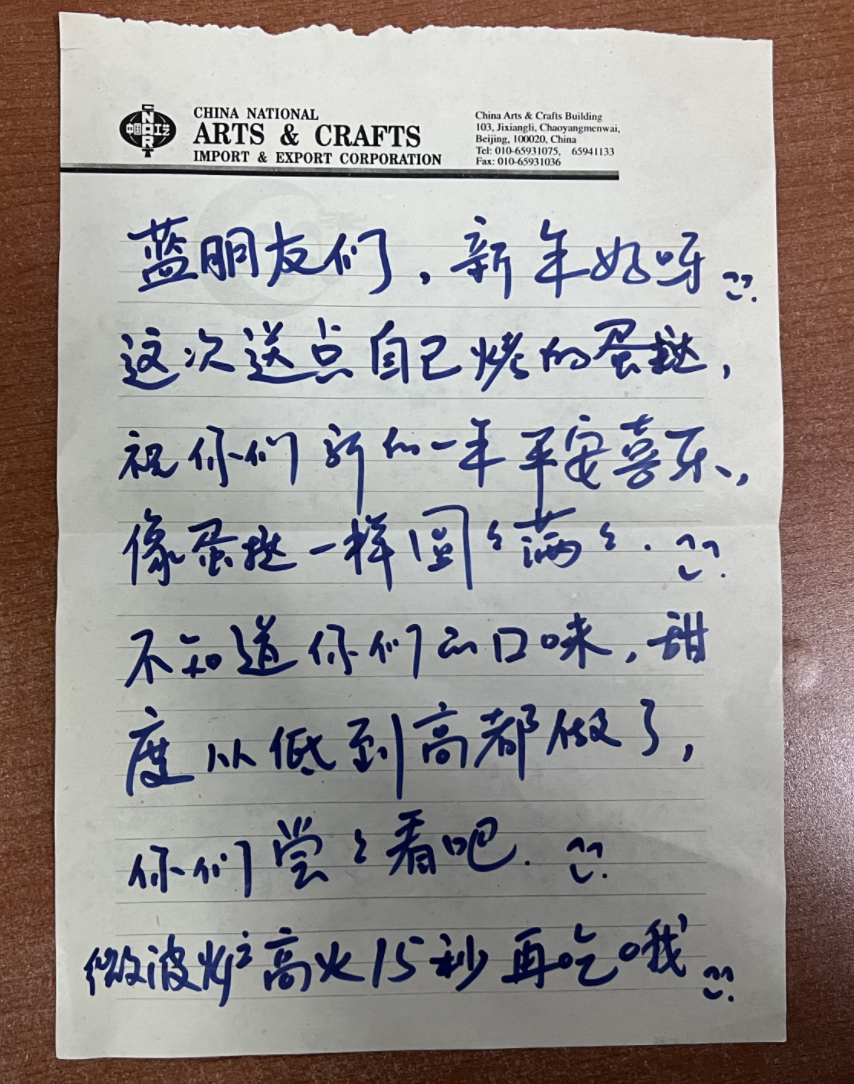 CNART
中国工艺
CHINA NATIONAL
ARTS & CRAFTS
IMPORT & EXPORT CORPORATION
China Arts & Crafts Building
103, Jixiangli, Chaoyangmenwai,
Beijing, 100020, China
Tel: 010-65931075, 65941133
Fax: 010-65931036
蓝朋友们，新年好呀
这次送点自己烤的蛋挞，
祝你们新的一年平安喜乐，
像蛋挞一样圆々满々.
不知道你们的口味，甜
度从低到高都做了，
你们尝々看吧.
微波炉高火15秒再吃哦